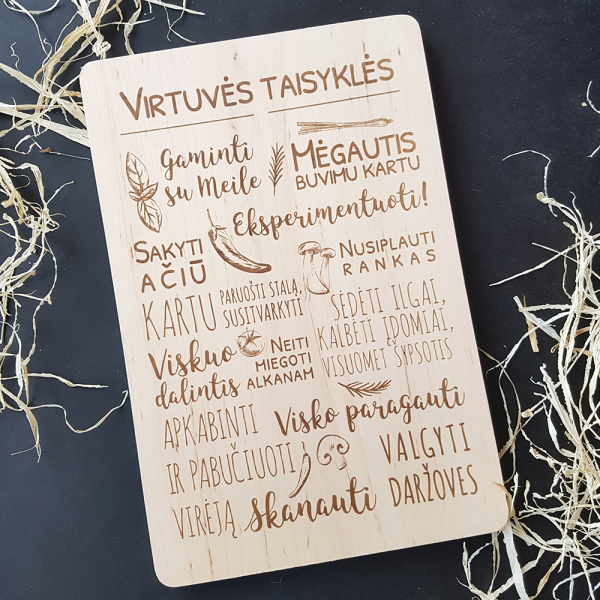 VIRTUVĖS TAISYKLĖS
Gaminti
su Meile
MĖGAUTIS
BUVIMU KARTU
Eksperimentuoti!
SAKYTI
AČIŪ
NUSIPLAUTI
RANKAS
KARTU
PARUOŠTI STALĄ,
SUSITVARKYTI
SĖDĖTI ILGAI,
KALBĖTI ĮDOMIAI,
VISUOMET ŠYPSOTIS
Viskuo
dalintis
NEITI
MIEGOTI
ALKANAM
Visko paragauti
APKABINTI
IR PABUČIUOTI
VIRĖJĄ
Skanauti
VALGYTI
DARŽOVES